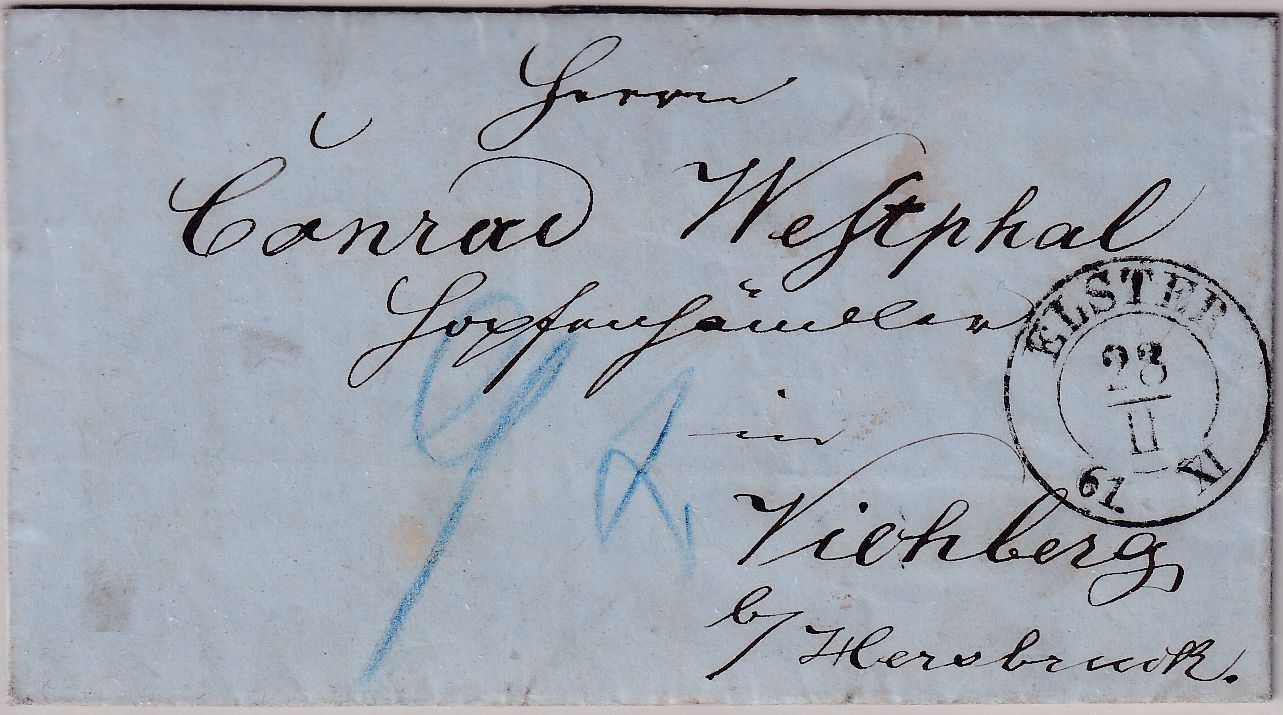 Herrn
Conrad Westphal
Hopfenhändler
in
Viehberg
b/ Hersbruck.
ELSTER
23
II
61 IX
9